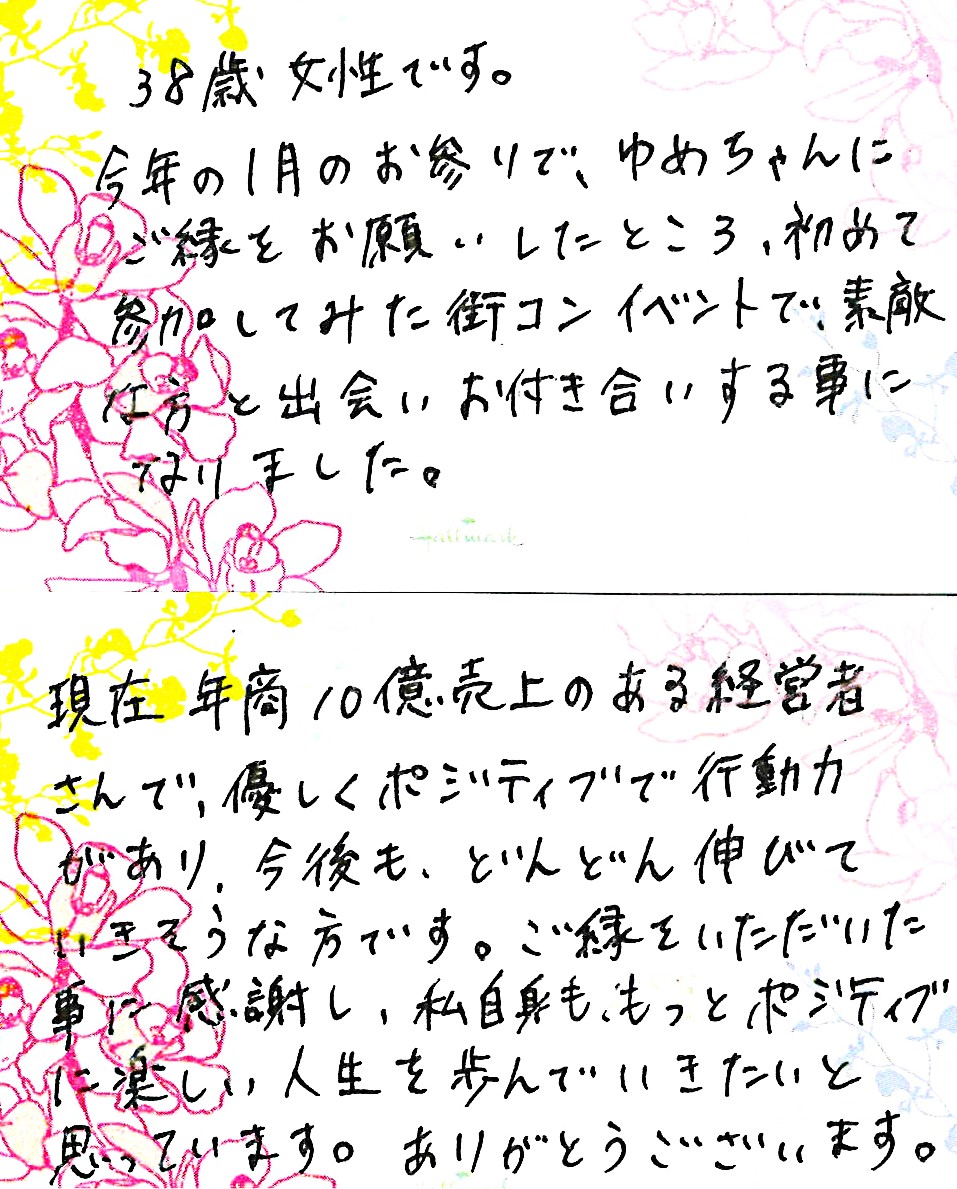 38歳 女性です。
今年の1月のお参りで、ゆめちゃんに
ご縁をお願いしたところ、初めて
参加してみた街コンイベントで、素敵
な方と出会いお付き合いする事に
なりました。
現在 年商10億売上のある経営者
さんで、優しくポジティブで行動力
があり、今後も、どんどん伸びて
いきそうな方です。ご縁をいただいた
事に感謝し、私自身も、もっとポジティブ
に楽しい人生を歩んでいきたいと
思っています。ありがとうございます。